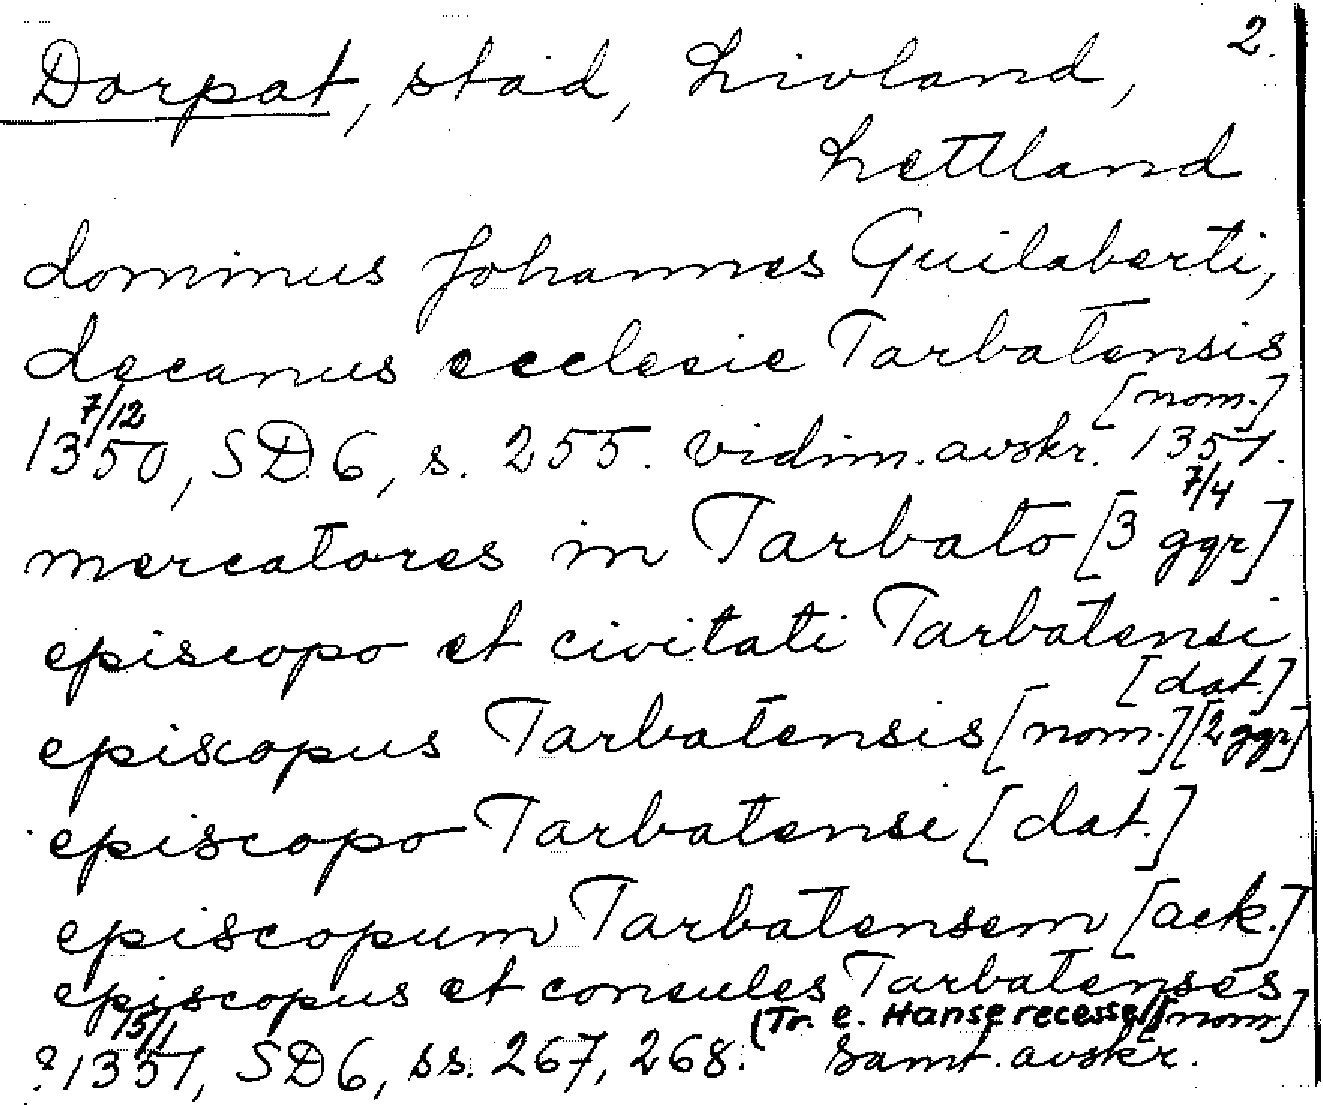 2.
Dorpat, stad, Livland,
Lettland
dominus Johannes Guilaberti,
decanus ecclesie Tarbatensis
[nom.]
7/12
1350, SD 6, s. 255. vidim. avskr. 1351.
7/4
mercatores in Tarbato [3 ggr]
episcopo et civitati Tarbatensi
[dat.]
episcopus Tarbatensis [nom.] [2 ggr]
episcopo Tarbatensi [dat.]
episcopum Tarbatensem [ack.]
episcopus et consules Tarbatenses
(Tr. e. Hanserecesse) [nom]
15/1
? 1351, SD 6, ss. 267, 268. Samt. avskr.